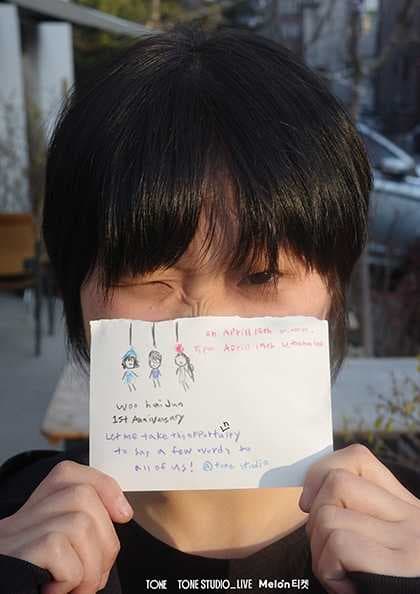 on April 18th
April 19th
woo hai Jun
1st Anniversary
Let me take this opportunity
to say a few words to
all of us! @tone studio
TONE TONE STUDIO_LIVE Melon티켓